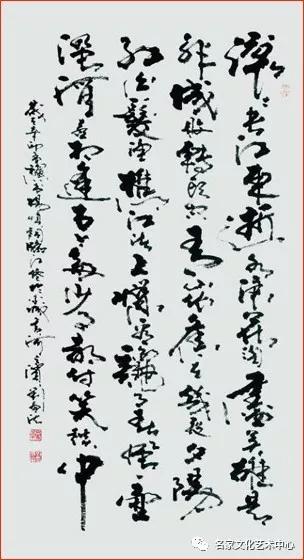 滚滚长江东逝水浪花淘尽英雄是
非成败转头空青山依旧在几度夕阳
红白髮渔樵江渚上惯看秋月春风一壶
浊酒喜相逢古今多少事都付笑谈中
辛卯 书杨慎词临江仙于
名家文化艺术中心